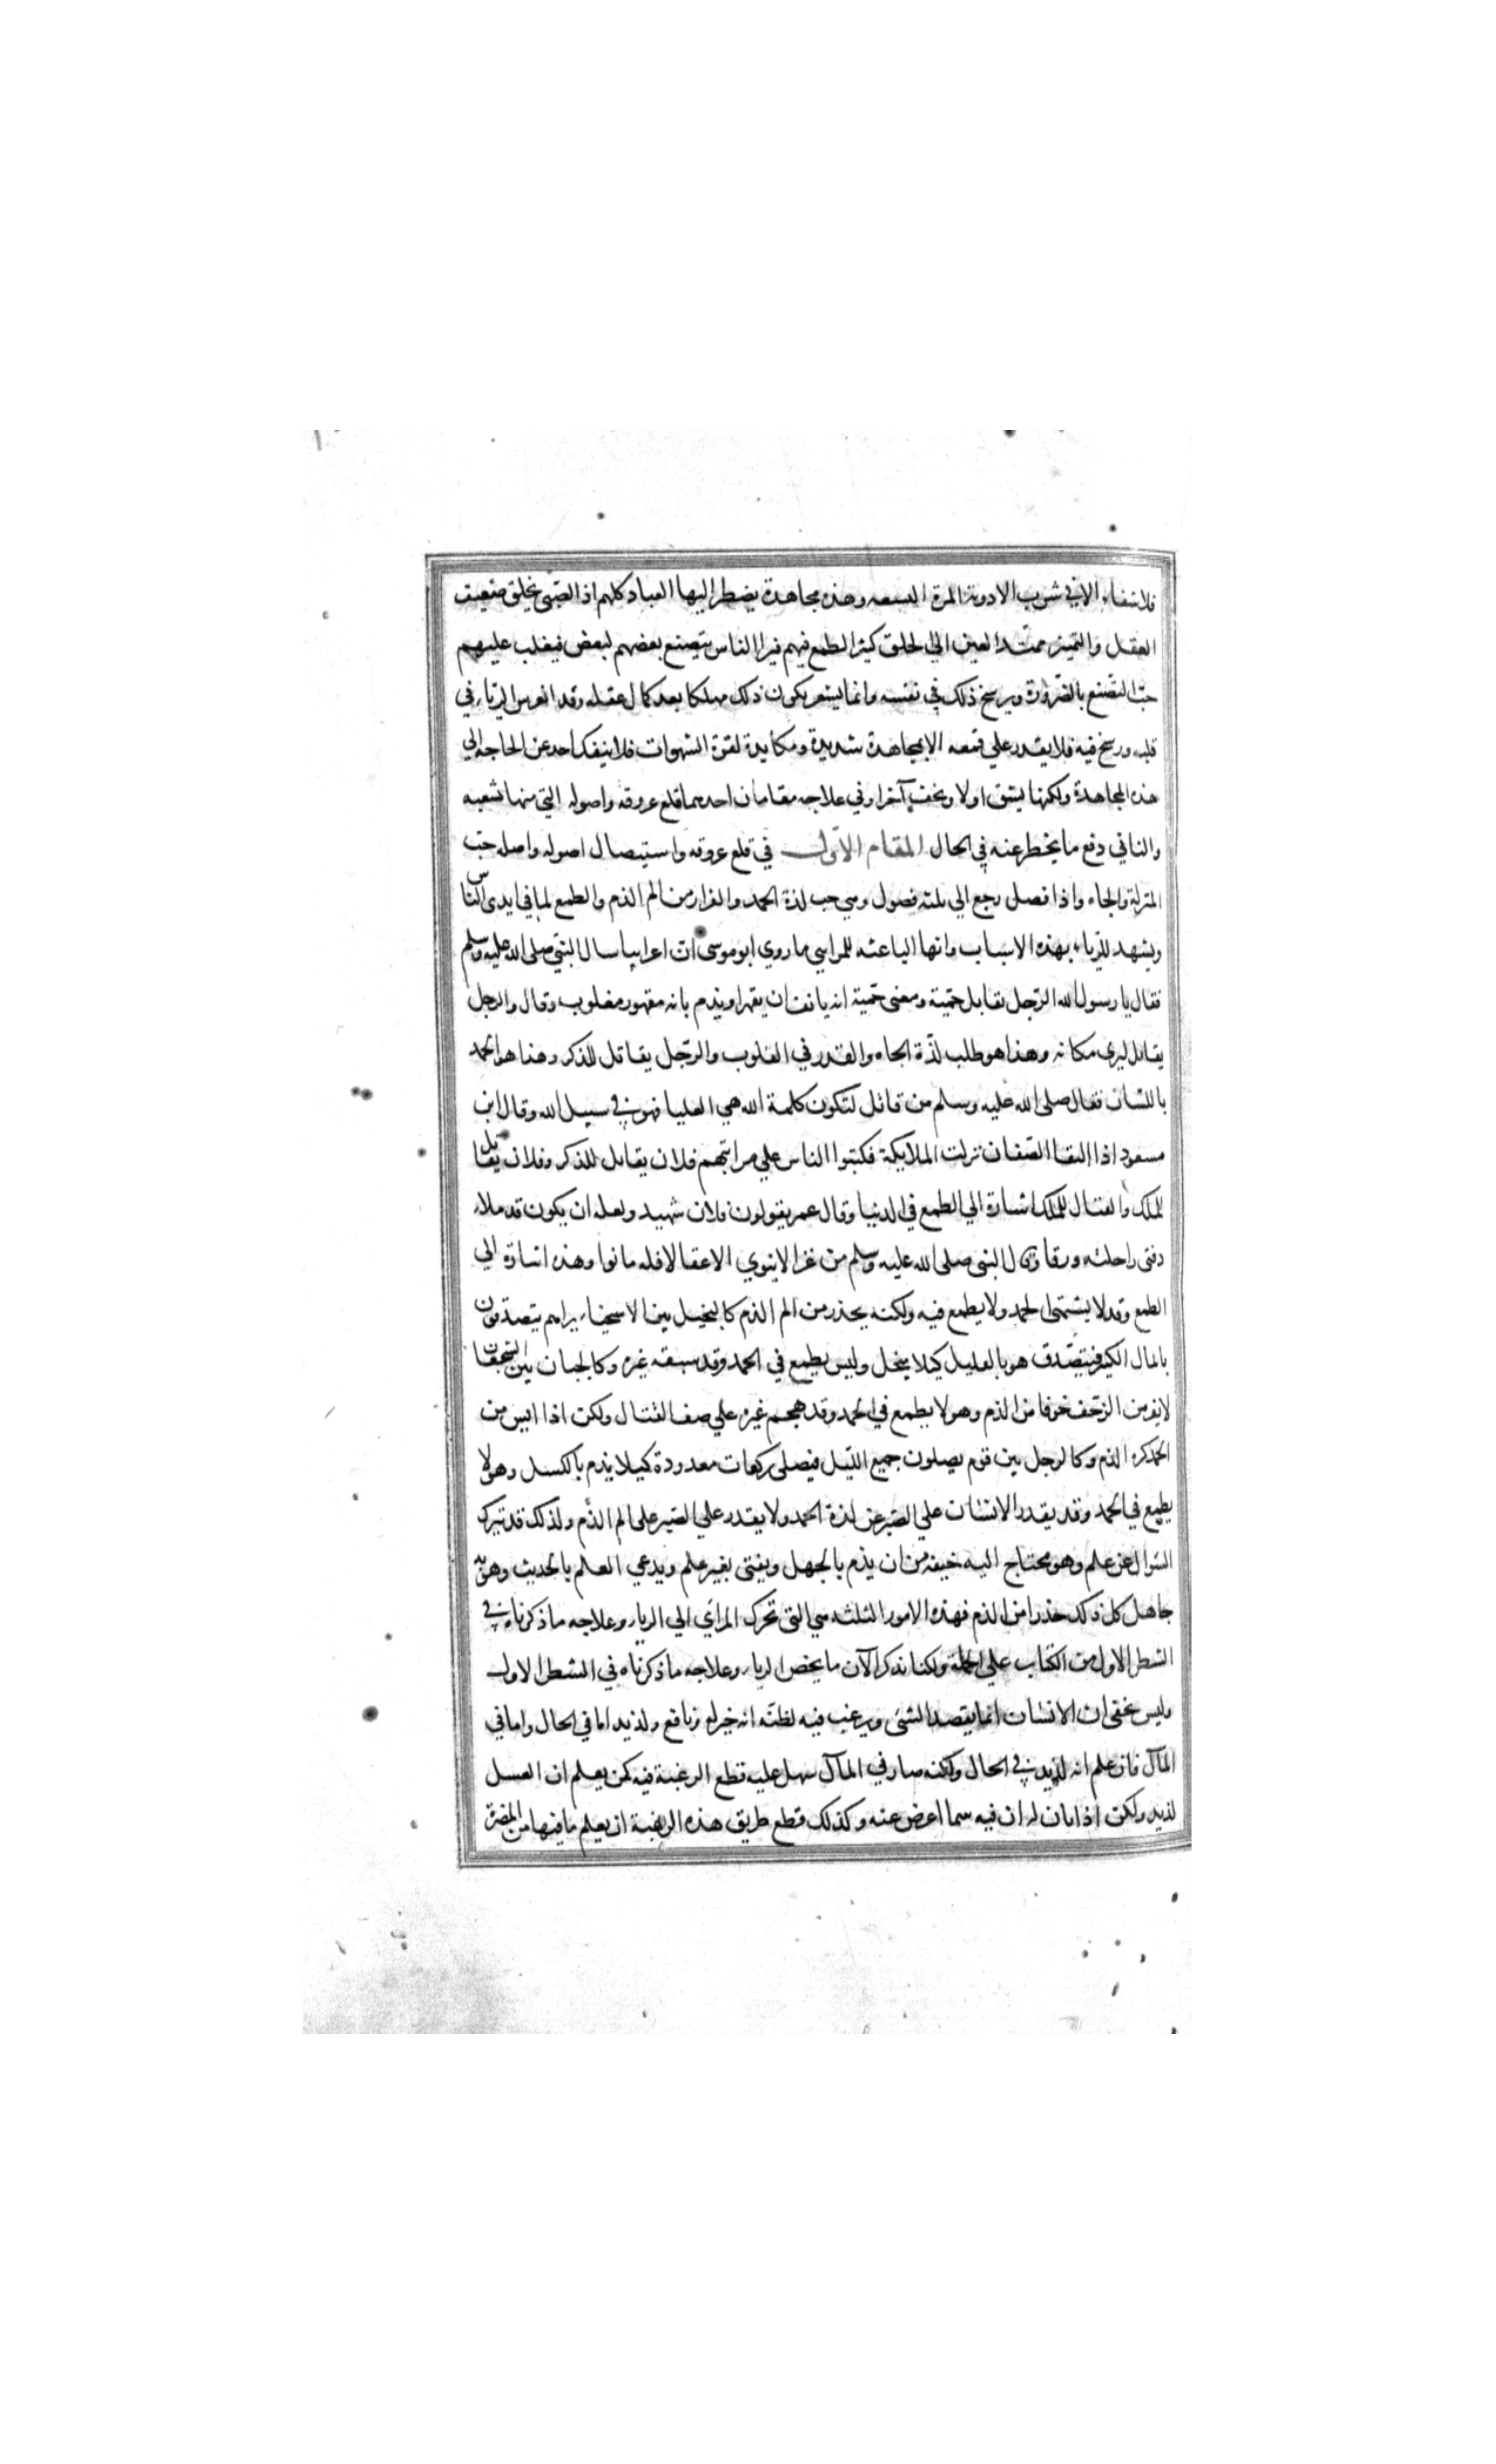 فلا شفاء الا في شرب الادوية المرة البسعه وهذه مجاهدة يضطر اليها العباد كلهم اذ الصبي يخلق ضعيف
العقل والتميز ممتد العين الي الخلق كثير الطمع فيهم فيرا الناس يتصنع بعضهم لبعض فيغلب عليهم
حب التصنع بالضرورة ويرسخ ذلك في نفسه وانما يشعر بكون ذلك مهلكا بعد كمال عقله وقد انغرس الرياء في
قلبه ورسخ فيه فلا يقدر علي قمعه الا بمجاهدة شديدة ومكابدة لقوة الشهوات فلا ينفك احد عن الحاجه الي
هذه المجاهدة ولكنها يشق اولا ويخف آخرا وفي علاجه مقامان احدهما قلع عروقه واصوله التي منها تشعبه
والثاني دفع ما يخطر عنه في الحال المقام الاول في قلع عروقه واستيصال اصوله واصله حب
المنزلة والجاه واذا فصل رجع الي ثلثه فصول وهي حب لذة الحمد والفرار من الم الذم والطمع لما في ايدي الناس
ويشهد للرياء بهذه الاسباب وانها الباعثه للمرايي ما روي ابو موسي ان اعرابيا سال النبي صلى الله عليه وسلم
فقال يا رسول الله الرجل يقاتل حمية ومعنى حمية انه يانف ان يقهر او يذم بانه مقهور مغلوب وقال والرجل
يقاتل ليرى مكانه وهذا هو طلب لذة الجاه والقدر في القلوب والرجل يقاتل للذكر وهذا هو الحمد
باللسان فقال صلى الله عليه وسلم من قاتل لتكون كلمة الله هي العليا فهو في سبيل الله وقال ابن
مسعود اذا التقا الصفان نزلت الملايكة فكتبوا الناس علي مراتبهم فلان يقاتل للذكر وفلان يقاتل
للملك والقتال للملك اشارة الي الطمع في الدنيا وقال عمر يقولون فلان شهيد ولعله ان يكون قد ملاء
دفتى راحلته ورقا وقال النبى صلى الله عليه وسلم من غزا لا ينوي الا عقالا فله ما نوا وهذه اشارة الي
الطمع وقد لا يشتهى الحمد ولا يطمع فيه ولكنه يحذر من الم الذم كالبخيل بين الاسخياء يراهم يتصدقون
بالمال الكثير فيتصدق هو بالقليل كيلا يبخل وليس يطمع في الحمد وقد سبقه غيره وكالجبان بين الشجعان
لا يفر من الزحف خوفا من الذم وهو لا يطمع في الحمد وقد هجم غيره علي صف القتال ولكن اذا ايس من
الحمد كره الذم وكالرجل بين قوم يصلون جميع الليل فيصلى ركعات معدودة كيلا يذم بالكسل وهو لا
يطمع في الحمد وقد يقدر الانسان علي الصبر عن لذة الحمد ولا يقدر علي الصبر على الم الذم ولذلك قد يترك
السوال عن علم وهو محتاج اليه خيفة من ان يذم بالجهل ويفتى بغير علم ويدعي العلم بالحديث وهو به
جاهل كل ذلك حذرا من الذم فهذه الامور الثلثه هي التي تحرك المراءي الي الرياء وعلاجه ما ذكرناه في
الشطر الاول من الكتاب علي الجملة ولكنا نذكر الآن ما يخص الرياء وعلاجه ما ذكرناه في الشطر الاول
وليس يخفى ان الانسان انما يقصد الشئ ويرغب فيه لظنه انه خير له ونافع ولذيد اما في الحال واما في
المآل فان علم انه لذيد في الحال ولكنه ضار في المآل سهل عليه قطع الرغبة فيه كمن يعلم ان العسل
لذيد ولكن اذا بان له ان فيه سما اعرض عنه وكذلك قطع طريق هذه الرغبة ان يعلم ما فيها من المضرة